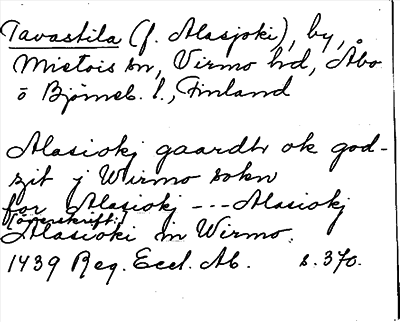 Tavastila (f. Alasjoki), by,
Mietois sn, Virmo hd, Åbo
o Björneb. l., Finland
Alasiokj gaardtr ok god-
zit j Wirmo sokn
for Alasiokj --- Alasiokj
[överskrift:]
Alasioki m Wirmo.
1439 Reg. Eccl. Ab. s. 370.